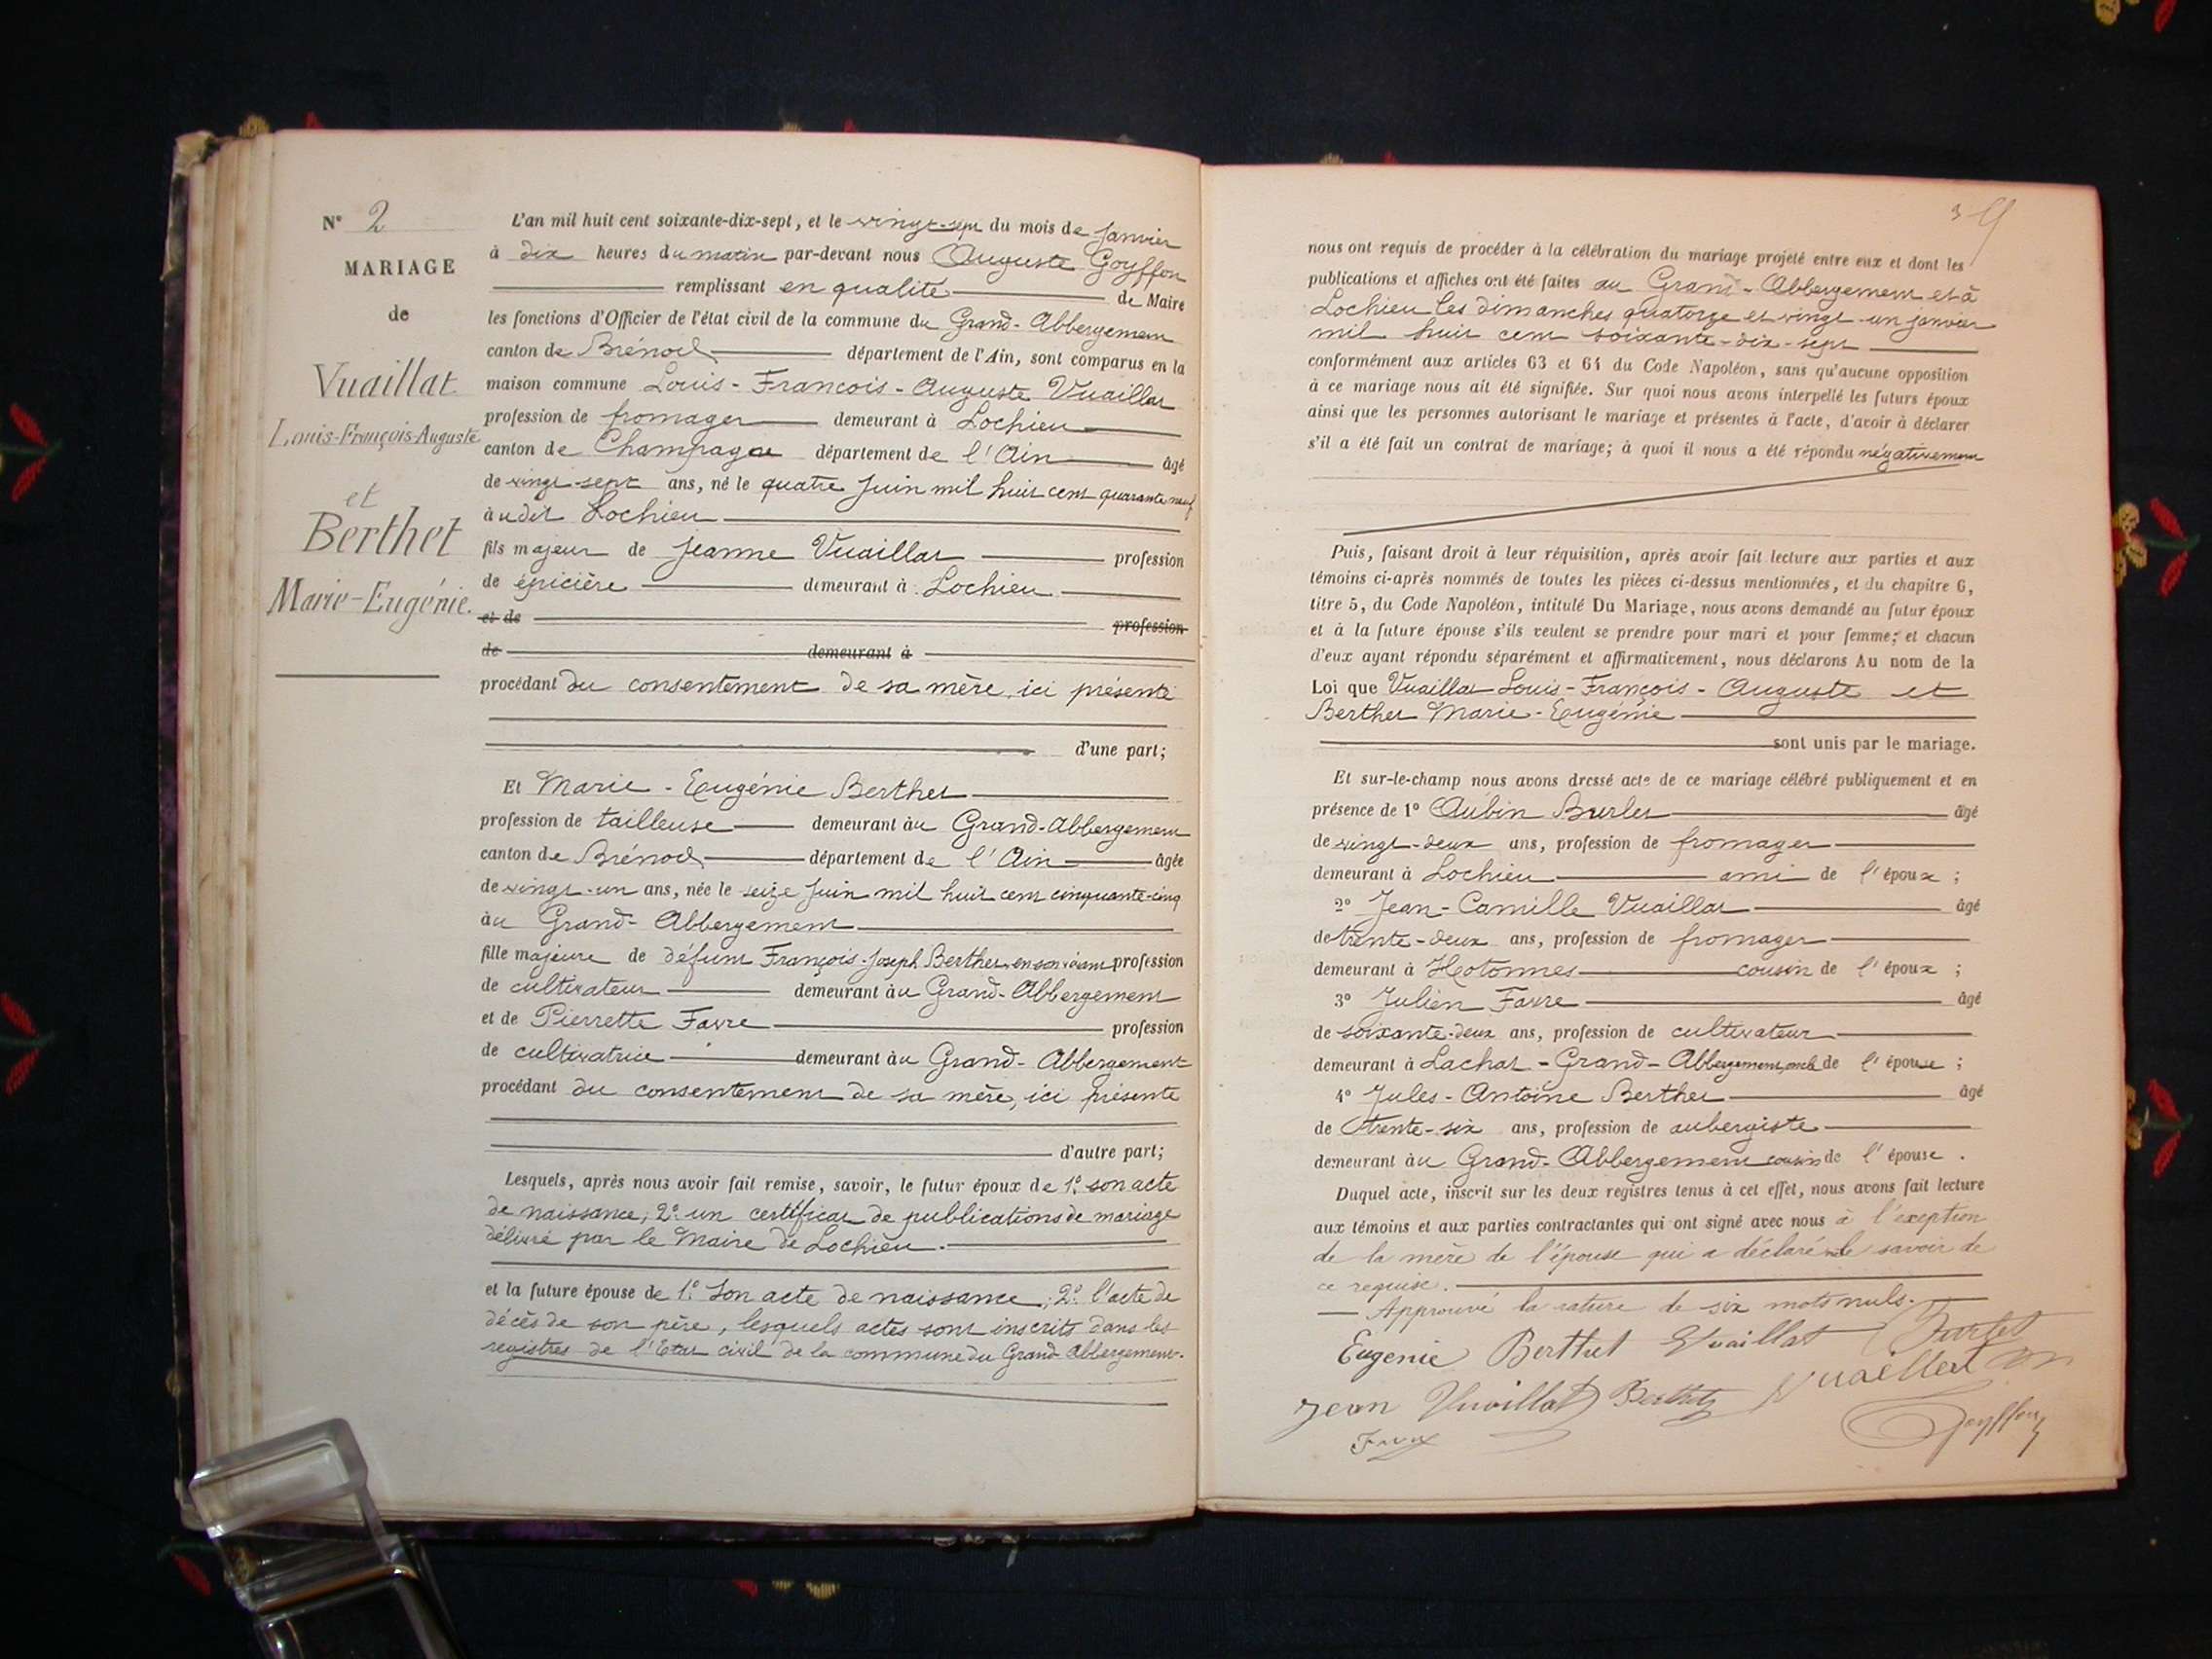 N° 2
MARIAGE
de
Vuaillat
Louis-François-Auguste
et
Berthet
Marie-Eugénie.
L'an mil huit cent soixante-dix-sept, et le vingt-sept du mois de Janvier
à dix heures du matin par-devant nous Auguste Goyffon
remplissant en qualité de Maire
les fonctions d'Officier de l'état civil de la commune du Grand-Abbergement
canton de Brénod département de l'Ain, sont comparus en la
maison commune Louis-François-Auguste Vuaillat
profession de fromager demeurant à Lochieu
canton de Champagne département de l'Ain âgé
de vingt-sept ans, né le quatre Juin mil huit cent quarante neuf
à udit Lochieu
fils majeur de Jeanne Vuaillat profession
de épicière demeurant à Lochieu
et de profession
de demeurant à
procédant du consentement de sa mère, ici présente
d'une part;
Et Marie-Eugénie Berthet
profession de tailleuse demeurant àu Grand-Abbergement
canton de Brénod département de l'Ain âgée
de vingt-un ans, née le seize Juin mil huit cent cinquante-cinq
àu Grand-Abbergement
fille majeure de défunt François-Joseph Berthet en son vivant profession
de cultivateur demeurant àu Grand-Abbergement
et de Pierrette Favre profession
de cultivatrice demeurant àu Grand-Abbergement
procédant du consentement de sa mère, ici présente
d'autre part;
Lesquels, après nous avoir fait remise, savoir, le futur époux de 1° son acte
de naissance; 2° un certificat de publications de mariage
délivré par le Maire de Lochieu.
et la future épouse de 1° Son acte de naissance; 2° l'acte de
décès de son père, lesquels actes sont inscrits dans les
registres de l'Etat civil de la commune du Grand-Abbergement.
3
nous ont requis de procéder à la célébration du mariage projeté entre eux et dont les
publications et affiches ont été faites au Grand-Abbergement et à
Lochieu les dimanches quatorze et vingt-un janvier
mil huit cent soixante-dix-sept
conformément aux articles 63 et 64 du Code Napoléon, sans qu'aucune opposition
à ce mariage nous ait été signifiée. Sur quoi nous avons interpellé les futurs époux
ainsi que les personnes autorisant le mariage et présentes à l'acte, d'avoir à déclarer
s'il a été fait un contrat de mariage; à quoi il nous a été répondu négativement
Puis, faisant droit à leur réquisition, après avoir fait lecture aux parties et aux
témoins ci-après nommés de toutes les pièces ci-dessus mentionnées, et du chapitre 6,
titre 5, du Code Napoléon, intitulé Du Mariage, nous avons demandé au futur époux
et à la future épouse s'ils veulent se prendre pour mari et pour femme; et chacun
d'eux ayant répondu séparément et affirmativement, nous déclarons Au nom de la
Loi que Vuaillat Louis-François-Auguste et
Berthet Marie-Eugénie
sont unis par le mariage.
Et sur-le-champ nous avons dressé acte de ce mariage célébré publiquement et en
présence de 1° Aubin Burlet âgé
de vingt-deux ans, profession de fromager
demeurant à Lochieu ami de l'époux;
2° Jean-Camille Vuaillat âgé
de trente-deux ans, profession de fromager
demeurant à Hotonnes cousin de l'époux;
3° Julien Favre âgé
de soixante-deux ans, profession de cultivateur
demeurant à Lachat-Grand-Abbergement, oncle de l'épouse;
4° Jules-Antoine Berthet âgé
de trente-six ans, profession de aubergiste
demeurant àu Grand-Abbergement cousin de l'épouse.
Duquel acte, inscrit sur les deux registres tenus à cet effet, nous avons fait lecture
aux témoins et aux parties contractantes qui ont signé avec nous à l'exeption
de la mère de l'épouse qui a déclaré ne le savoir de
ce requise.
Approuvé la rature de six mots nuls.
Eugenie Berthet Vuaillat Burlet
Jean Vuaillat Berthet Vuaillat
Goyffon